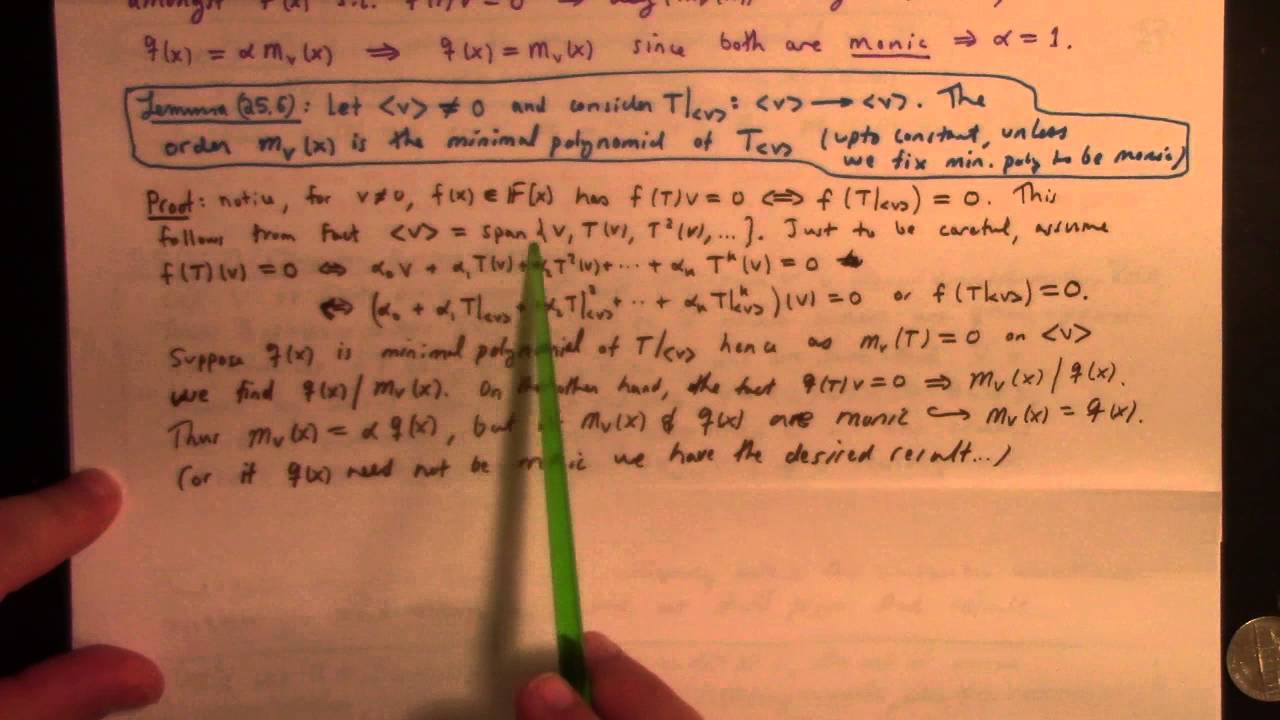 amongst f(x) s.t. f(T)v = 0 ⇒
q(x) = α m_v(x) ⟹ q(x) = m_v(x) since both are monic ⇒ α = 1.
Lemma (25.6): Let <v> ≠ 0 and consider T|<v> : <v> ⟶ <v>. The
order m_v(x) is the minimal polynomial of T<v> (upto constant, unless
we fix min. poly to be monic)
Proof: notice, for v≠0, f(x) ∈ F[x] has f(T)v = 0 ⟺ f(T|<v>) = 0. This
follows from fact <v> = span{v, T(v), T²(v), ...}. Just to be careful, assume
f(T)(v) = 0 ⇔ α₀v + α₁T(v) + α₂T²(v) + ... + αₖ Tᵏ(v) = 0
⇔ (α₀ + α₁T|<v> + α₂T|²<v> + ... + αₖT|ᵏ<v>)(v) = 0 or f(T|<v>) = 0.
Suppose q(x) is minimal polynomial of T|<v> hence as m_v(T) = 0 on <v>
we find q(x) / m_v(x). On the other hand, the fact q(T)v = 0 ⇒ m_v(x) / q(x).
Thus m_v(x) = α q(x), but if m_v(x) & q(x) are monic ↪ m_v(x) = q(x).
(or if q(x) need not be monic we have the desired result...)